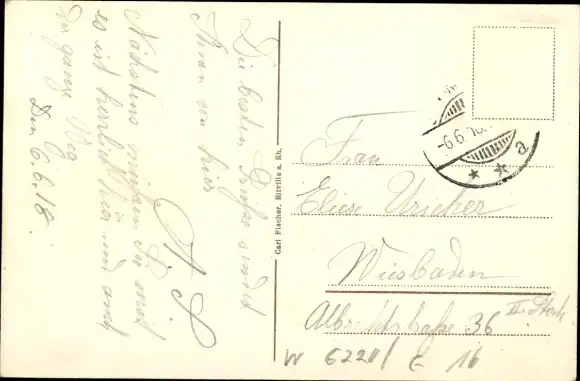 Die besten Grüße sendet
Ihnen von hier
A S
Nächstens müssen Sie mit
es ist herrlich hier und auch
der ganze Weg
Den 6.6.18.
Carl Fischer, Eltville a. Rh.
-6.6.18.
* * a
Frau
Eliese Uricher
Wiesbaden
Albrechtstraße 36
II Stock
W 6220/ E 16